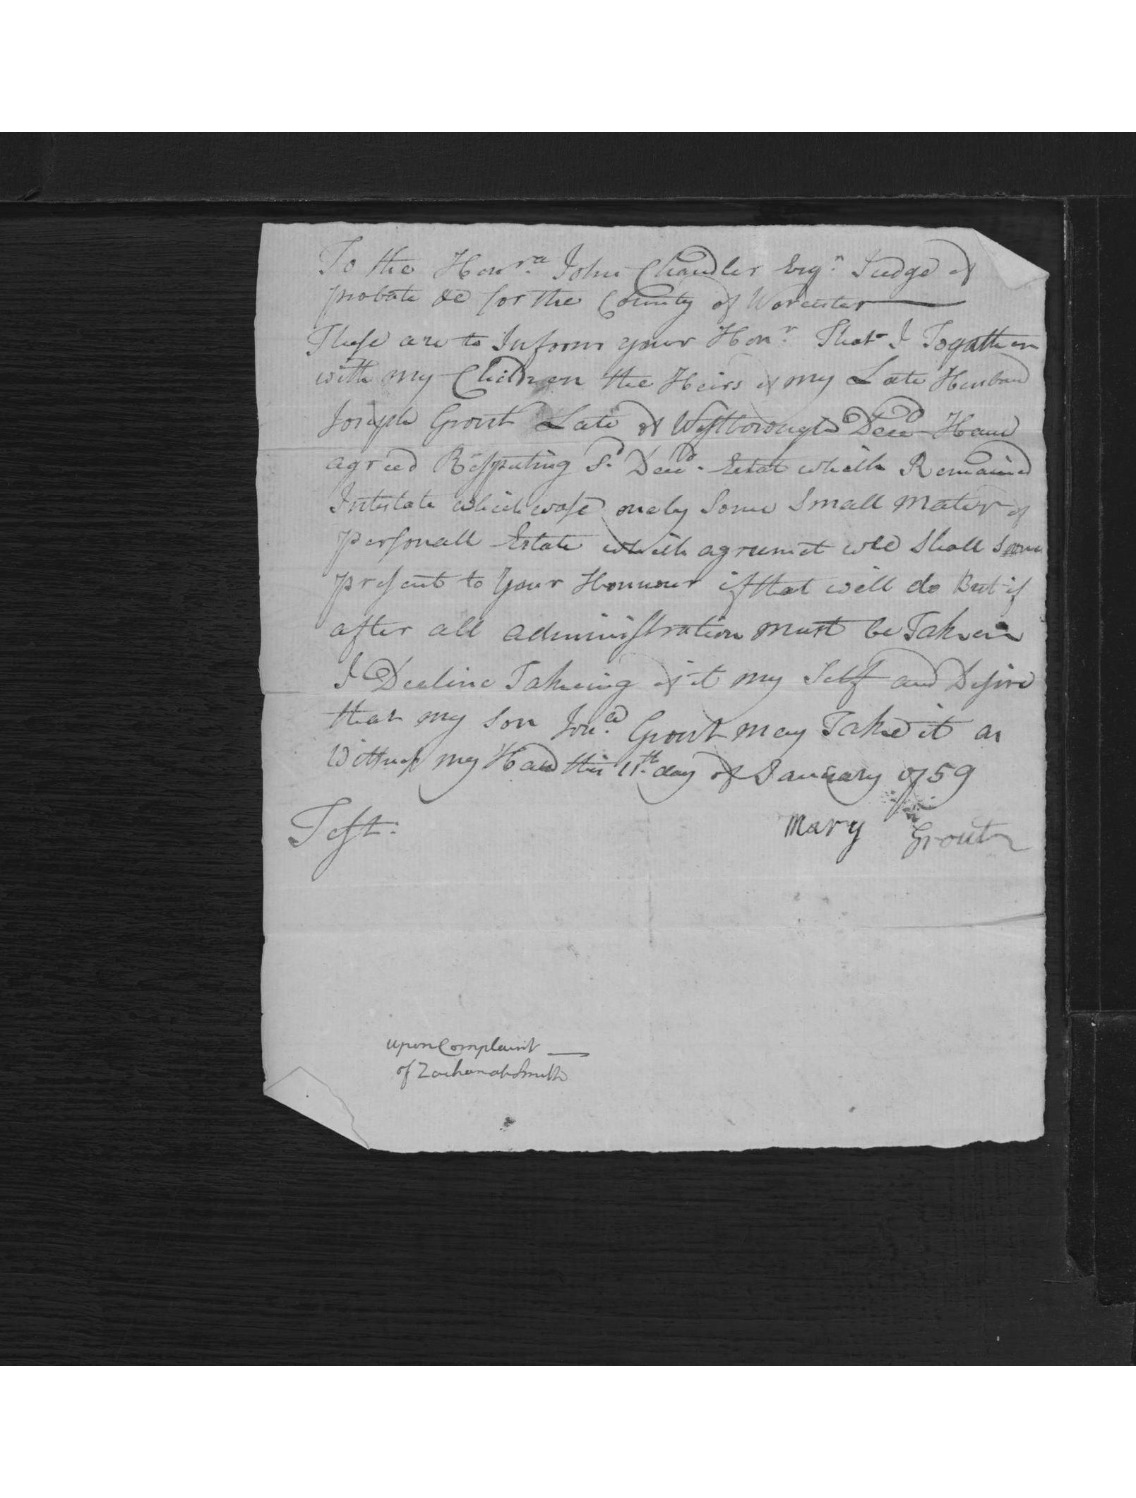 To the Honra. John Chandler Esqr. Judge of
probate &c for the County of Worcester
These are to Inform your Honr. That I Togather
with my Children the Heirs of my Late Husband
Joseph Grout Late of Westborough Decd Have
agreed Respecting Sd. Decd. Estat which Remained
Intestate which wase onely Some Small Mater of
personall Estate which agreement we Shall Soon
present to Your Honnour if that will do But if
after all administration must be Taken
I Decline Takeing of it my Self and Desire
that my Son Jona. Grout may Take it as
Witness my Hand this 11th. day of January 1759
Test.
Mary Grout
upon Complaint
of Zachariah Smith